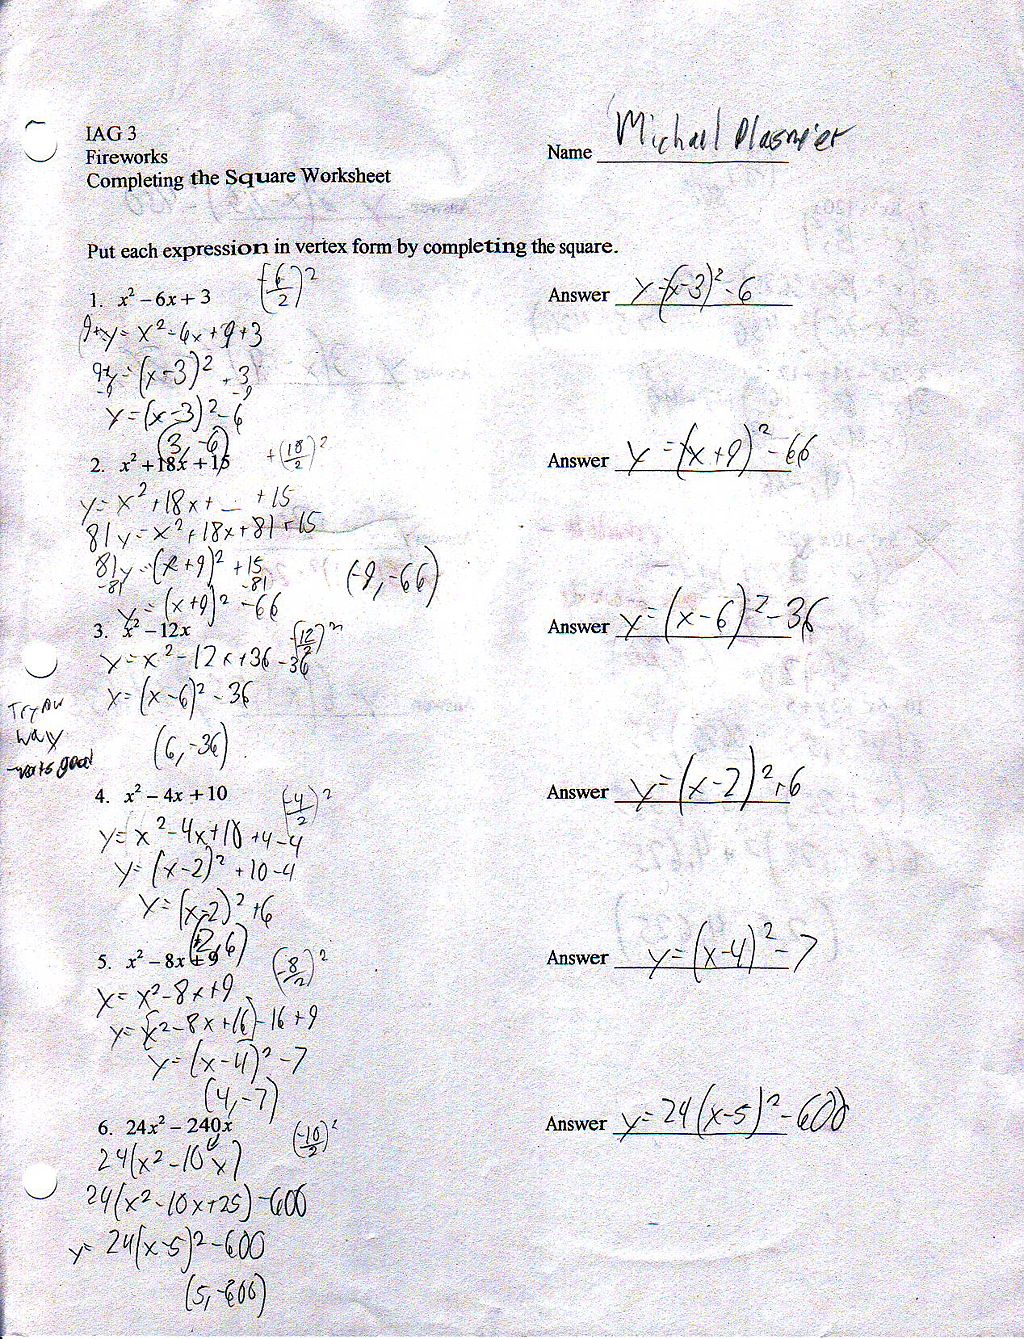 IAG 3
Fireworks
Completing the Square Worksheet
Name Michael Plasmier
Put each expression in vertex form by completing the square.
1. x² – 6x + 3 (-6/2)²
Answer y=(x-3)²-6
9+y= x²-6x+9+3
9+y=(x-3)²+3
-9 -9
y=(x-3)²-6
(3,-6)
2. x² + 18x + 15 +(18/2)²
Answer y=(x+9)²-66
y=x²+18x+_ +15
81y=x²+18x+81+15
81y=(x+9)²+15
-81 -81
y=(x+9)²-66
(-9,-66)
3. x² – 12x (-12/2)²
Answer y=(x-6)²-36
y=x²-12x+36-36
y=(x-6)²-36
(6,-36)
Try
way
good
4. x² – 4x + 10 (-4/2)²
Answer y=(x-2)²+6
y=x²-4x+10+4-4
y=(x-2)²+10-4
y=(x-2)²+6
(2,6)
5. x² – 8x + 9 (-8/2)²
Answer y=(x-4)²-7
y=x²-8x+9
y=(x²-8x+16)-16+9
y=(x-4)²-7
(4,-7)
6. 24x² – 240x (-10/2)²
Answer y=24(x-5)²-600
24(x²-10x)
24(x²-10x+25)-600
y=24(x-5)²-600
(5,-600)